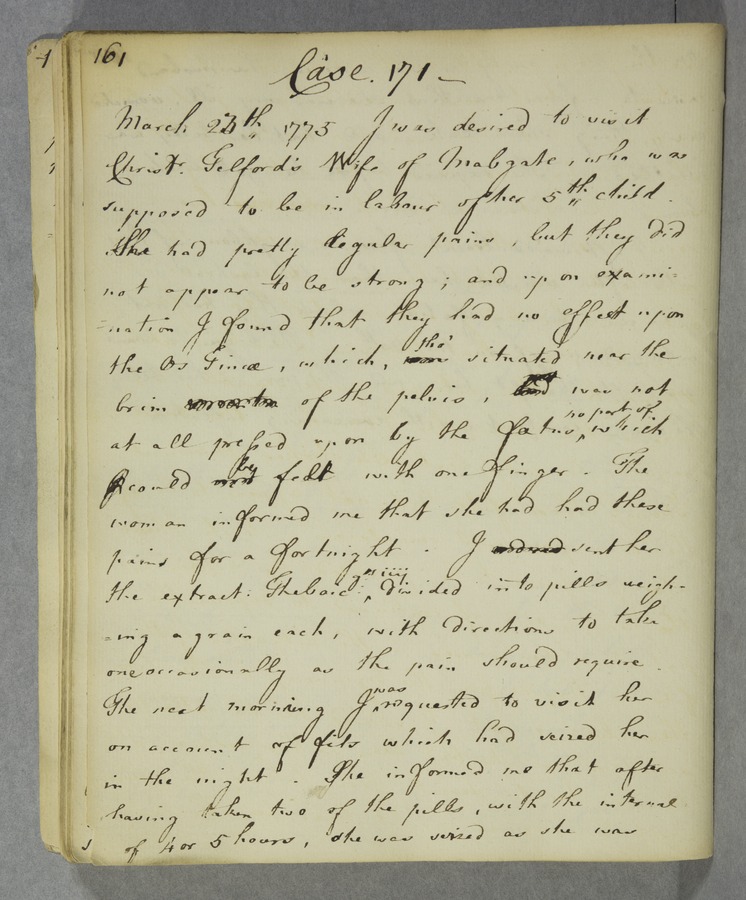 161
Case. 171 –
March 23th 1775 I was desired to visit
Christr. Gelford's Wife of Mabgate, who was
supposed to be in labour of her 5th child.
She had pretty regular pains, but they did
not appear to be strong; and upon exami=
=nation I found that they had no effect upon
the Os Tincæ, which, tho' situated near the
brim of the pelvis, was not
at all pressed upon by the fœtus, no part of which
could be felt with one finger. The
woman informed me that she had had these
pains for a fortnight. I sent her
the extract. Thebaic. gr. iiij divided into pills weigh-
=ing a grain each, with directions to take
one occasionally as the pain should require.
The next morning I was requested to visit her
on account of fits which had seized her
in the night. She informed me that after
having taken two of the pills, with the interval
of 4 or 5 hours, she was seized as she was